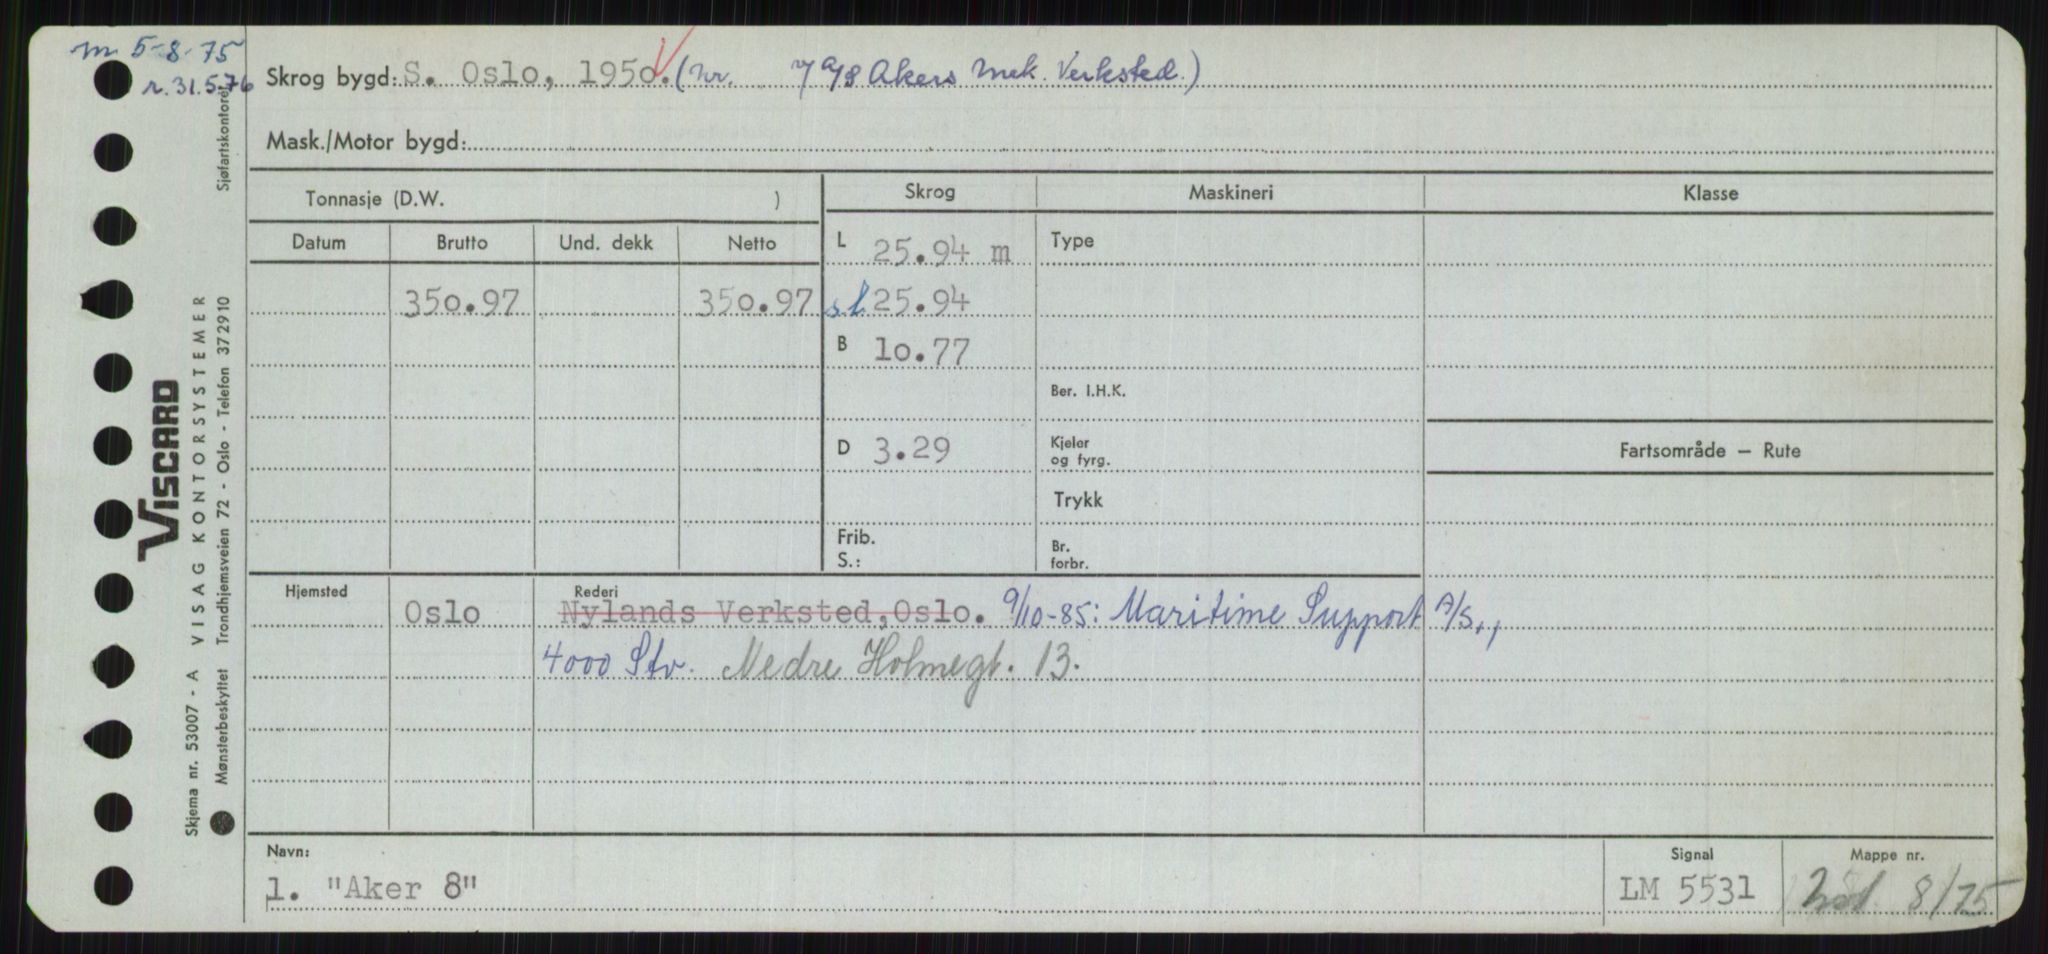 m 5-8-75
r. 31.5.76
Skrog bygd: S. Oslo, 1950. (nr. v/ A/S Akers mek. Verksted.)
Mask./Motor bygd:
Tonnasje (D.W. )
Skrog Maskineri Klasse
Datum Brutto Und. dekk Netto
L 25.94 m Type
350.97 350.97 s.l. 25.94
B 10.77
Ber. I.H.K.
D 3.29 Kjeler
og fyrg.
Fartsområde – Rute
Trykk
Frib.
S.:
Br.
forbr.
Hjemsted Rederi
Oslo Nylands Verksted, Oslo. 9/10-85: Maritime Support A/S,,
4000 Stv. Nedre Holmegt. 13.
Navn: Signal Mappe nr.
1. "Aker 8" LM 5531 8/75
VISCARD
VISAG KONTORSYSTEMER
Skjema nr. 53007 - A
Mønsterbeskyttet Trondhjemsveien 72 - Oslo - Telefon 372910
Sjøfartskontoret